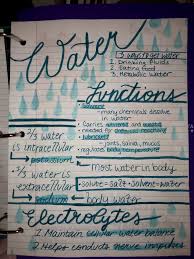 Water
3 ways to get water
1. Drinking fluids
2. Eating food
3. Metabolic water
functions
• Solvent
many chemicals dissolve
in water
• Carries
• needed for chemical reactions
• lubricant
- joints, saliva, mucus
• regulates body temperature
2/3 water
is intracellular
↳ potassium
1/3 water is
extracellular
↳ sodium
Most water in body
• solute = salt • solvent = water
Electrolytes
1. Maintain cellular water balance
2. Helps conducts nerve impulses